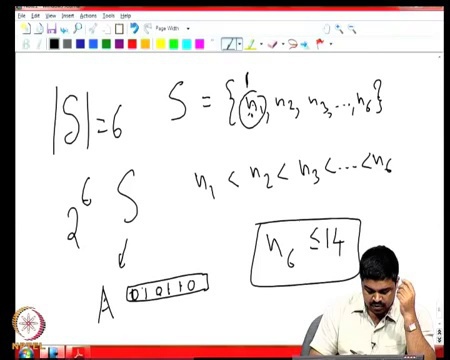 File Edit View Insert Actions Tools Help
Page Width
|S| = 6
S = {n₁, n₂, n₃, ..., n₆}
1
n₁ < n₂ < n₃ < ... < n₆
2⁶ S
n₆ ≤ 14
A 010110